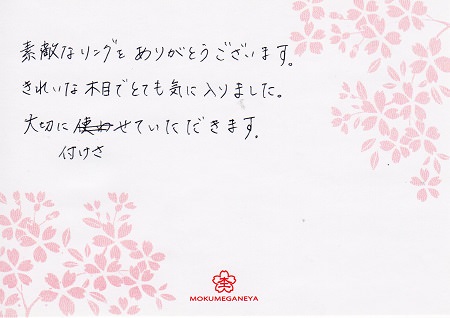 素敵なリングをありがとうございます。
きれいな木目でとても気に入りました。
大切に使わせていただきます。
付けさ
MOKUMEGANEYA